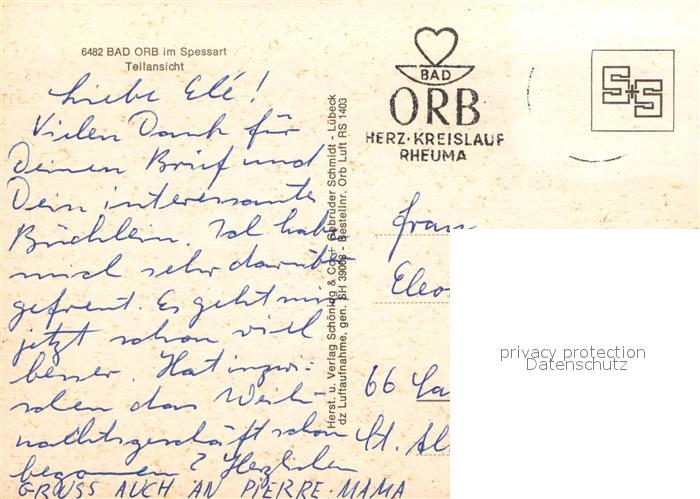 6482 BAD ORB im Spessart
Teilansicht
Liebe Elé!
Vielen Dank für
Deinen Brief und
Dein interessantes
Büchlein. Ich habe
mich sehr darüber
gefreut. Es geht mir
jetzt schon viel
besser. Hat inzwi-
schen das Weih-
nachtsgeschäft schon
begonnen? Herzlichen
GRUSS AUCH AN PIERRE. MAMA
Herst. u. Verlag Schöning & Co + Gebrüder Schmidt - Lübeck
dz Luftaufnahme, gen. SH 39008 - Bestellnr. Orb Luft RS 1403
BAD
ORB
HERZ·KREISLAUF
RHEUMA
S+S
Frau
66
St.
privacy protection
Datenschutz